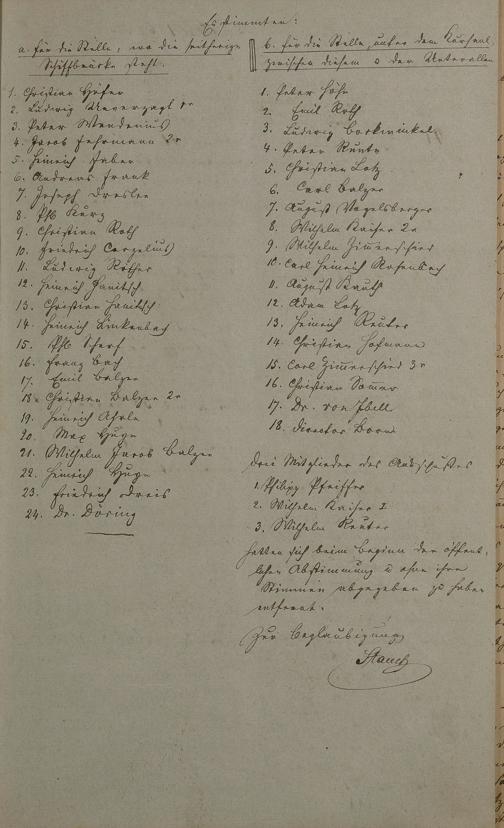 Es stimmten:
a. für die Stelle, wo die seitherige
Schiffbrücke steht.
1. Christian Höfer
2. Ludwig Unverzagt
3. Peter Wendenius
4. Jacob Fuhrmann 2r
5. Heinrich Faber
6. Andreas Frank
7. Joseph Dresler
8. Phl. Kurz
9. Christian Roth
10. Friedrich
11. Ludwig Röther
12. Heinrich Hanitsch
13. Christian Hanitsch
14. Heinrich Linkenbach
15. Phl. Scharf
16. Franz Bach
17. Emil Balzer
18. Christian Balzer 2r
19. Heinrich
20. Max
21. Wilhelm Jacob Balzer
22. Heinrich
23. Friedrich Dreis
24. Dr. Döring
b. für die Stelle, unter dem Kursaal,
zwischen diesem u der Unterallee
1. Peter Höhn
2. Emil Roth
3. Ludwig Backwinkel
4. Peter
5. Christian Lotz
6. Carl Balzer
7. August Vogelsberger
8. Wilhelm Kaiser 2r
9. Wilhelm Zimmerschied
10. Carl Heinrich Rosenbach
11. August Kauth
12. Adam Lotz
13. Heinrich Reuter
14. Christian Hofmann
15. Carl Zimmerschied 3r
16. Christian Sommer
17. Dr. von Ibell
18. Director
Drei Mitglieder des Ausschusses
1. Philipp Pfeiffer
2. Wilhelm Kaiser I
3. Wilhelm Reuter
hatten sich beim Beginn der öffent-
lichen Abstimmung u ohne ihre
Stimmen abgegeben zu haben
entfernt.
Zur Beglaubigung
Stauch